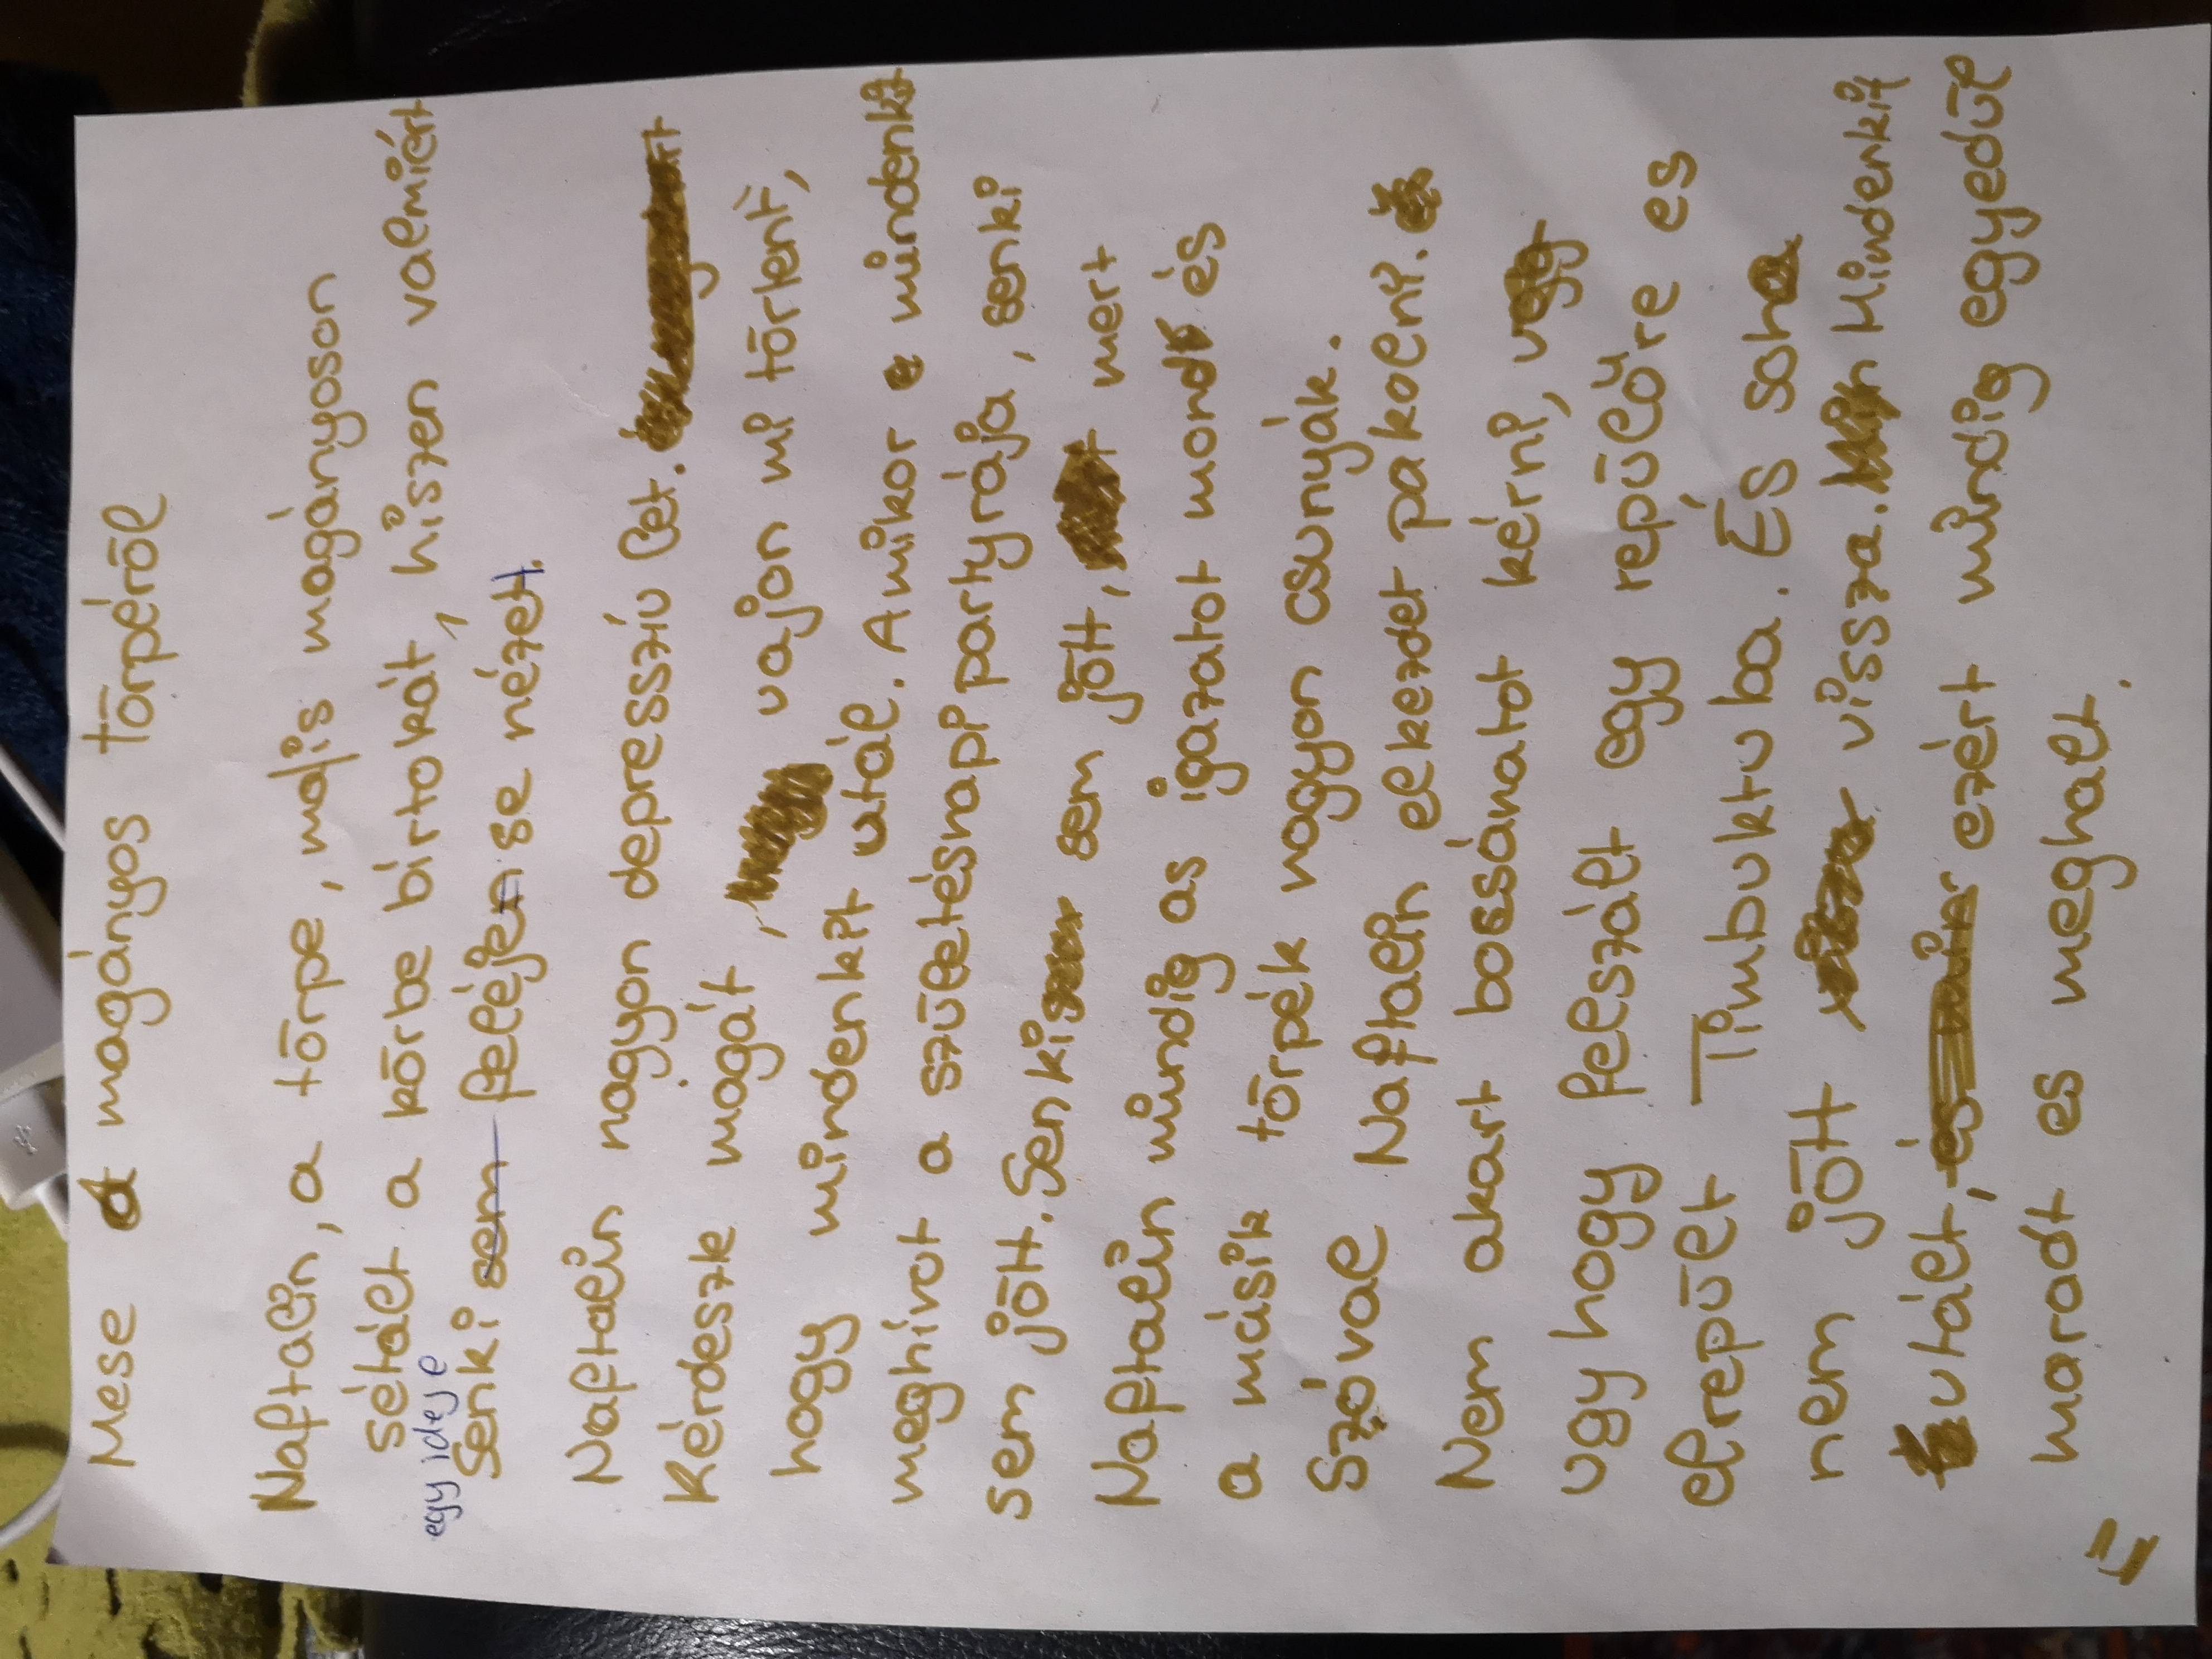 Mese a magányos törpéröl
Naftalin, a törpe, ma is magányoson
sétált a körbe birtokát, hiszen valmiért
egy ideje
Senki sem feléjen se nézett.
Naftalin nagyon depresszív let.
Kérdeszte magát, vajon mi törtent,
hogy mindenkit utál. Amikor mindenkit
meghívot a születésnapp partyrája, senki
sem jött. Senki sem jött, mert
Naftalin mindig as igazatot mond és
a másik törpék nagyon csunyák.
Szóval Naftalin elkezdet pakolni.
Nem akart bossánatot kérni,
ugy hogy felszált egy repülőre es
elrepült Timbuktuba. És soha
nem jött vissza. Mindenkit
utált, ezért mindig egyedül
maradt es meghalt.